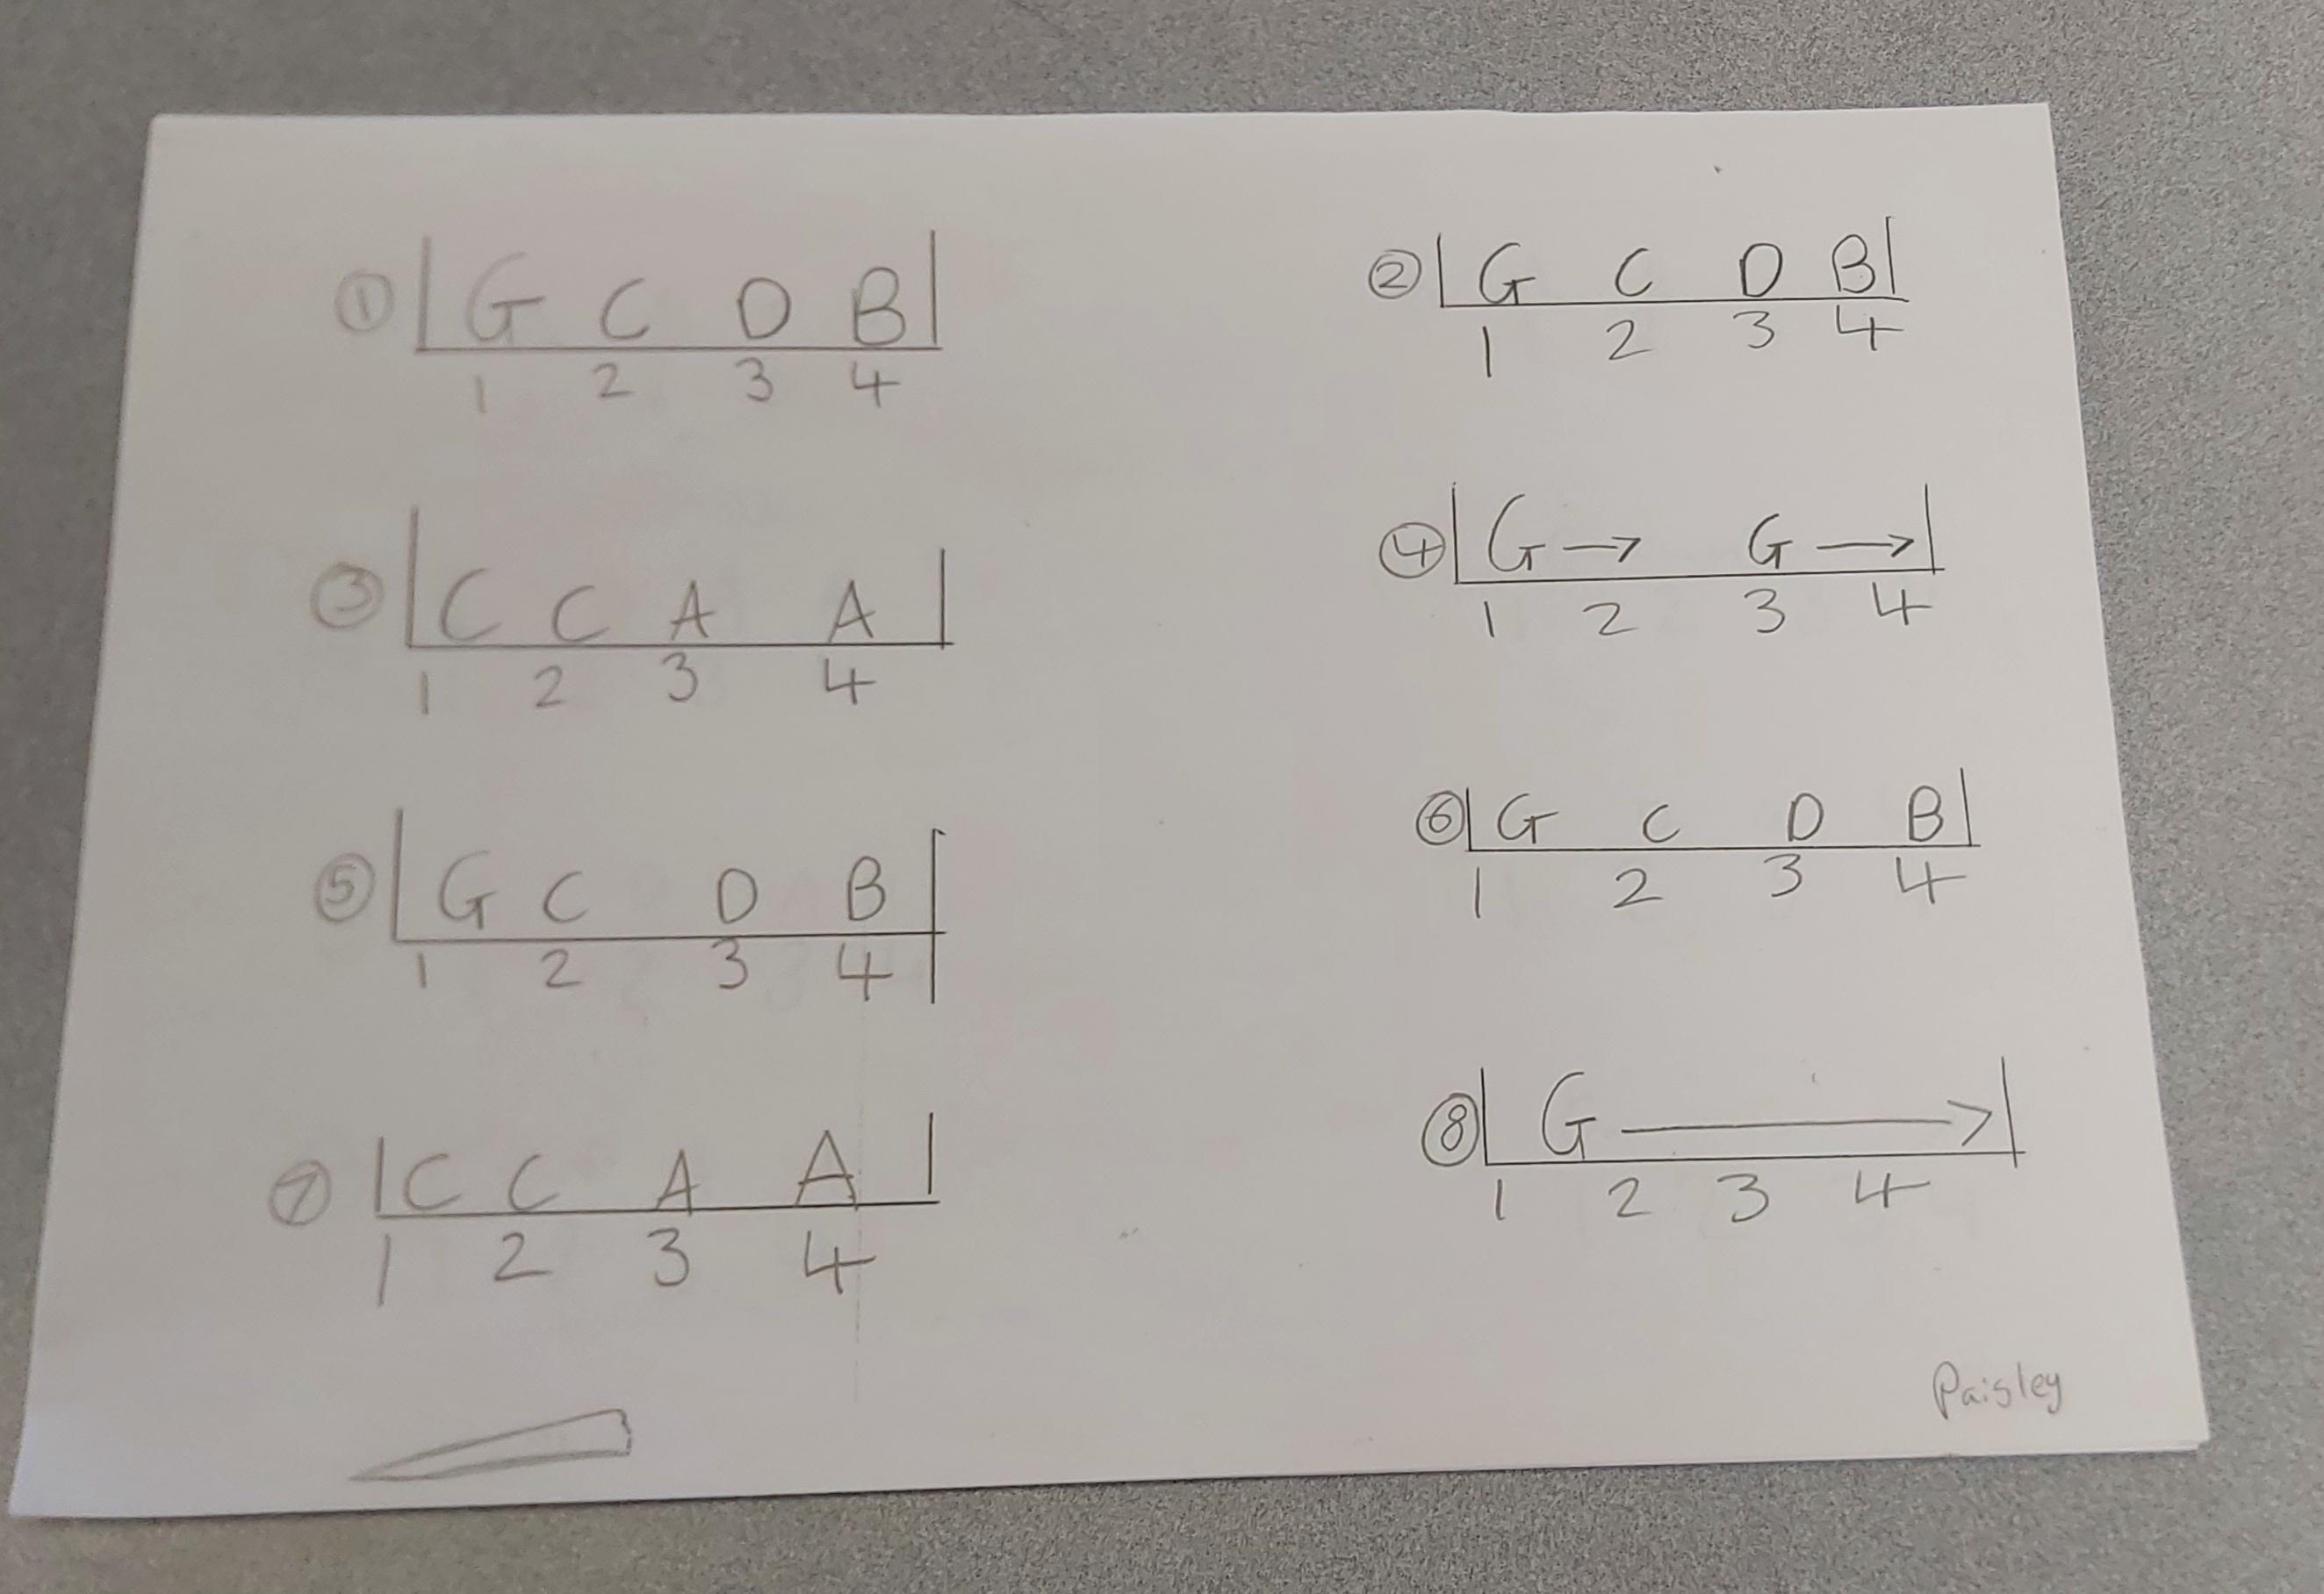 ① G C D B
1 2 3 4
② G C D B
1 2 3 4
③ C C A A
1 2 3 4
④ G → G →
1 2 3 4
⑤ G C D B
1 2 3 4
⑥ G C D B
1 2 3 4
⑦ C C A A
1 2 3 4
⑧ G →
1 2 3 4
Paisley